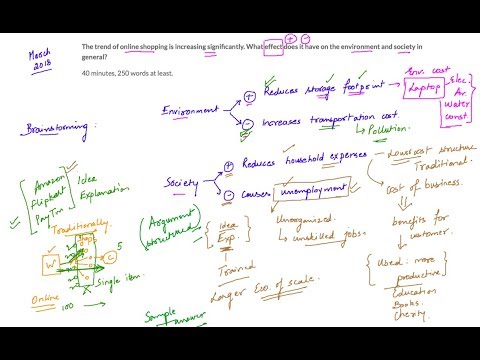 March 2018
The trend of online shopping is increasing significantly. What effect does it have on the environment and society in
general?
40 minutes, 250 words at least.
Brainstorming :
Environment
+ Reduces storage footprint
- Increases transportation cost.
Pollution.
Env. cost
Laptop
Elec.
Water
const
Society
+ Reduces household expenses
- Causes unemployment
Lowcost structure
Traditional.
Cost of business.
benefits for
customer.
Used: more
productive
Education
Books.
Charity.
Unorganized.
unskilled jobs.
Amazon
Flipkart
PayTm
Idea
Explanation
(Argument
structured)
Idea
Exp.
Trained
Larger Eco. of scale.
Traditionally.
W
C
5
X Single item.
Online
100
Sample
answer